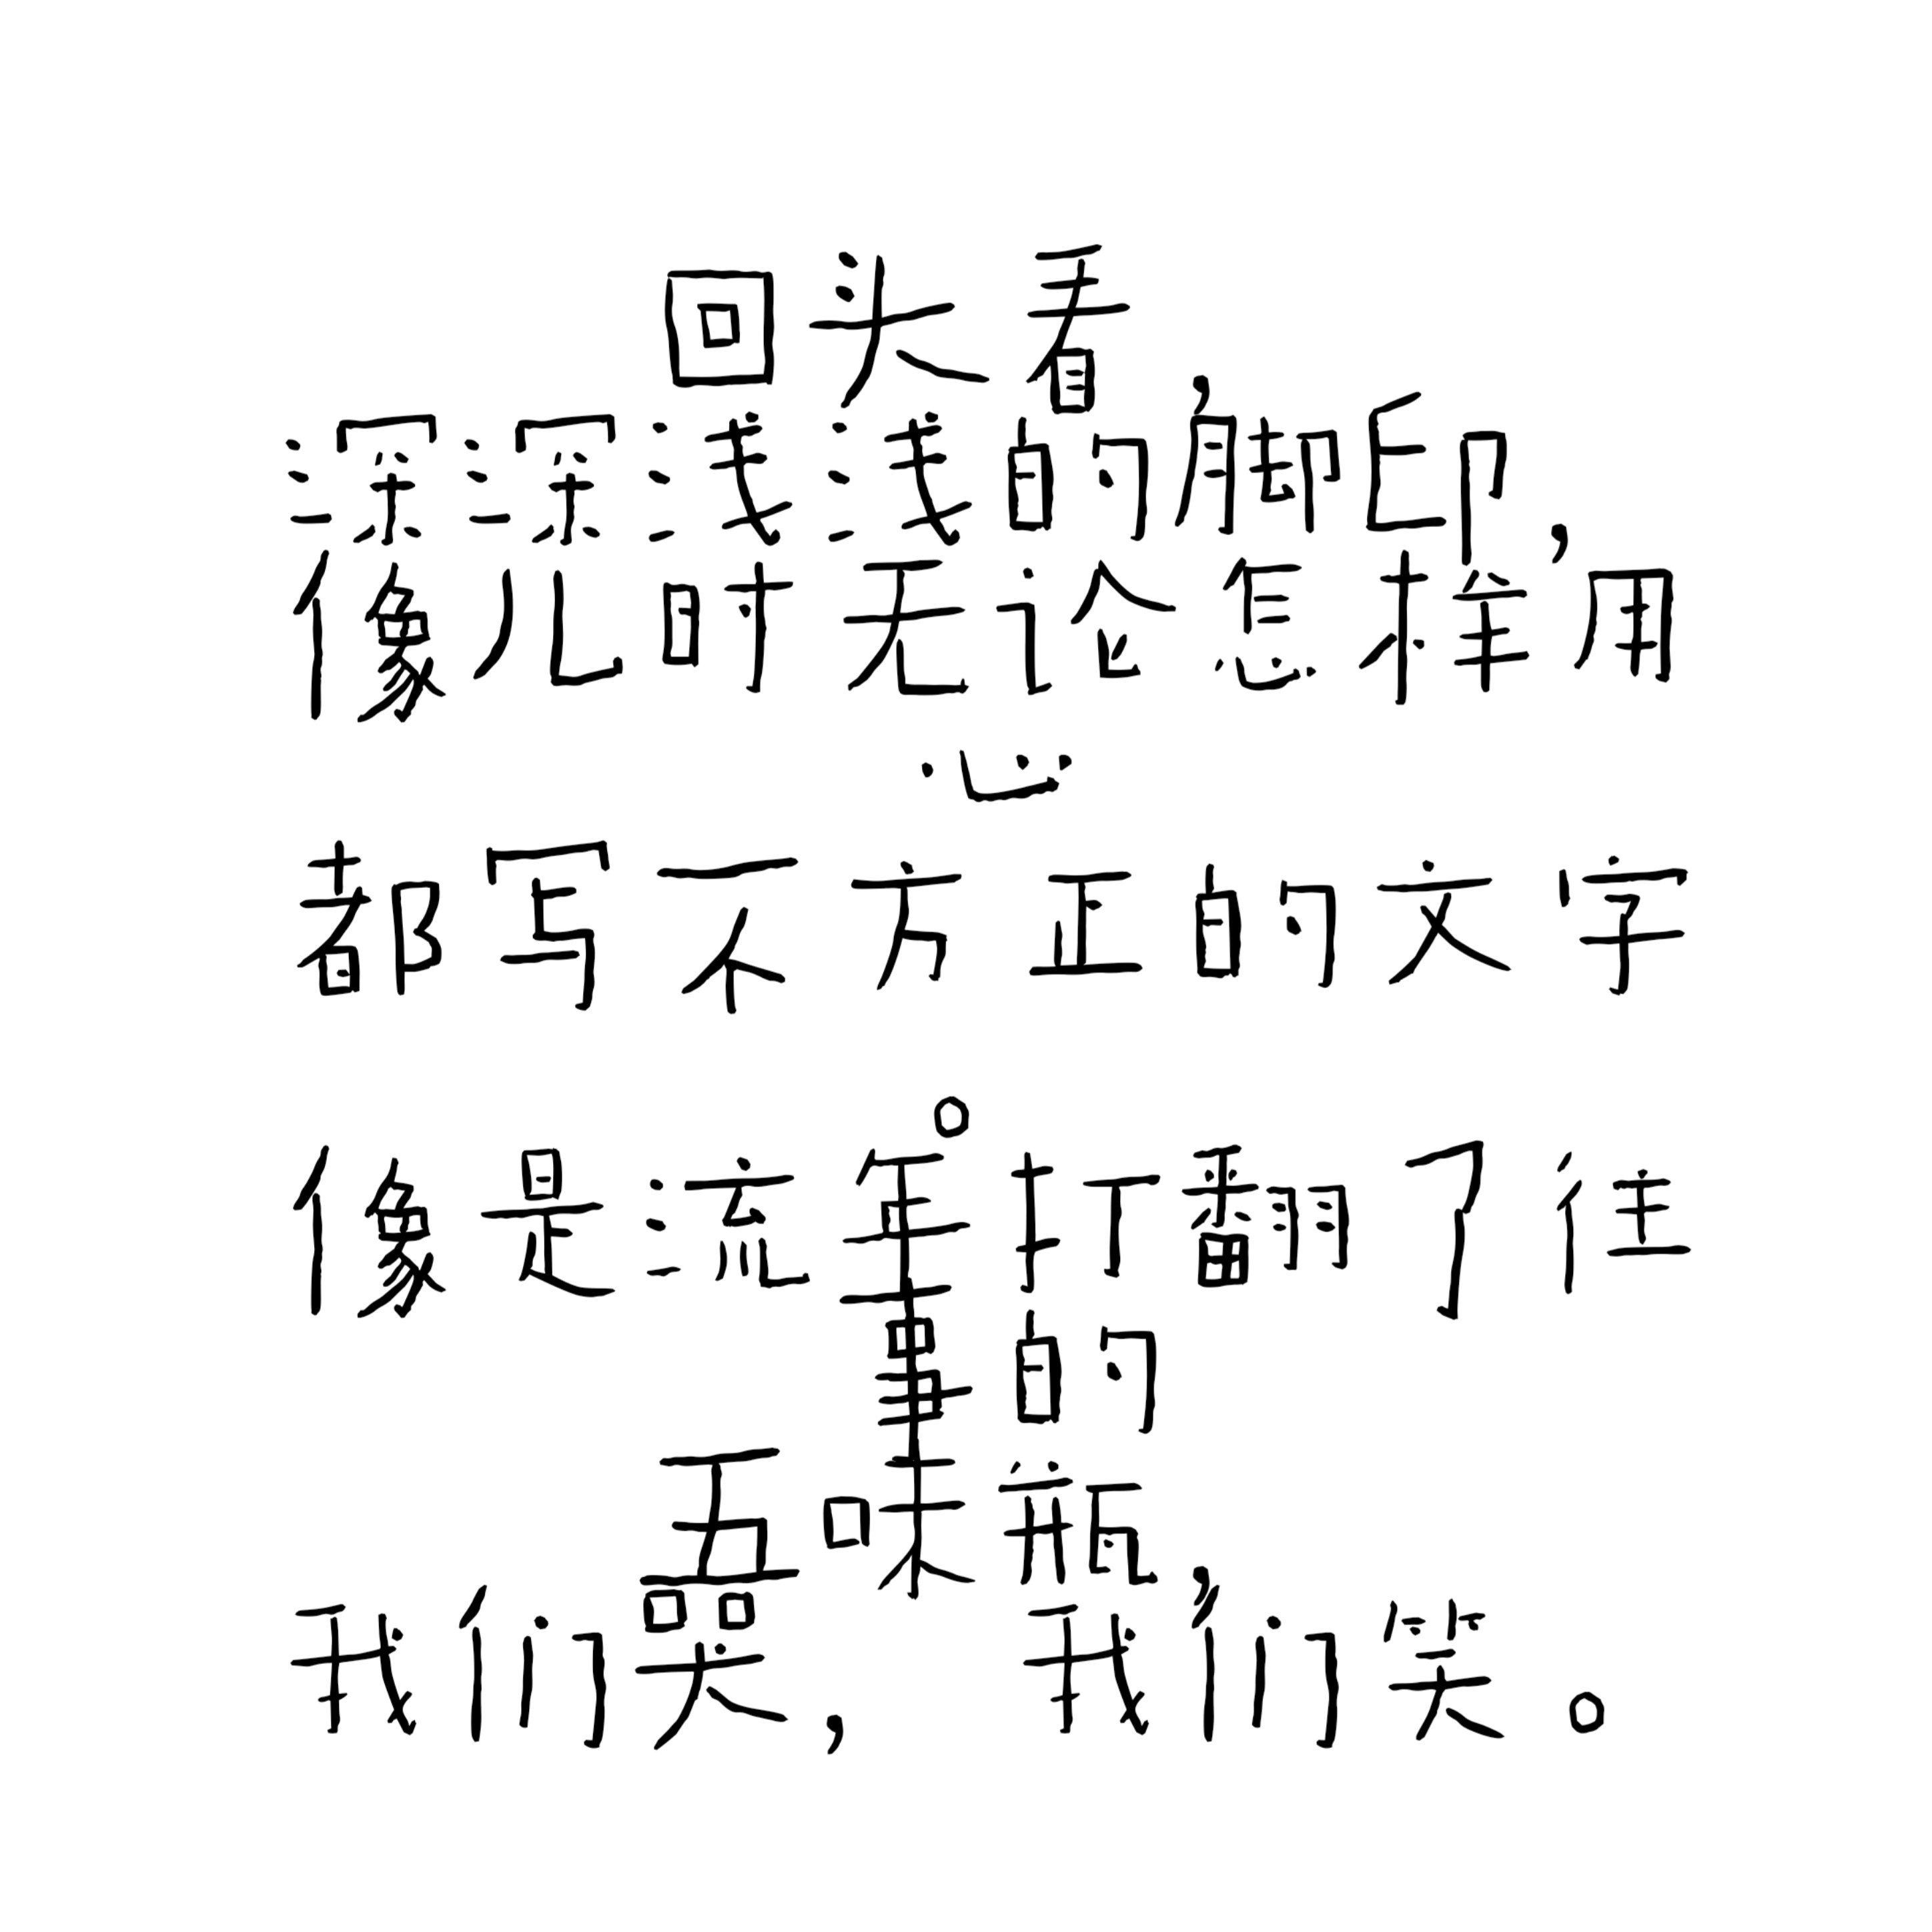 回头看,
深深浅浅的脚印,
像儿时无论怎样用
心
都写不方正的文字
。
像是流年打翻了往
事的
五味瓶,
我们哭,我们笑。